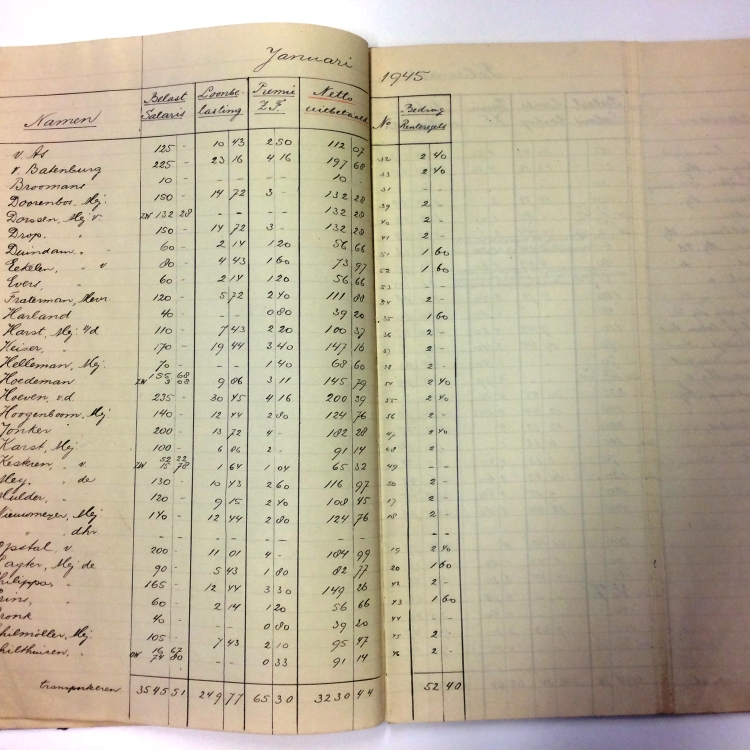 Januari 1945
Namen Belast Salaris Loonbelasting Premie Z.F. Netto uitbetaald No Bedrag Rentezegels
v. As 125 - 10 43 2 50 112 07 32 2 40
v. Batenburg 225 - 23 16 4 16 197 68 33 2 40
Broomans 10 - - - - - 10 - 31 - -
Doorenbos, Mej. 150 - 14 72 3 - 132 28 39 2 -
Dorssen, Mej v. ZW 132 28 - - - - 132 28 40 2 -
Drop, " 150 - 14 72 3 - 132 28 41 2 -
Duindam, " 60 - 2 14 1 20 56 66 51 1 60
Eekelen, " v 80 - 4 43 1 60 73 97 52 1 60
Evers, " 60 - 2 14 1 20 56 66 53 - -
Fraterman, Mevr 120 - 5 72 2 40 111 88 34 2 -
Harland 40 - - - 0 80 39 20 35 1 60
Harst, Mej. v/d 110 - 7 43 2 20 100 37 36 2 -
Keiser, " 170 - 19 44 3 40 147 16 37 2 -
Helleman, Mej. 70 - - - 1 40 68 60 38 2 -
Hoedeman ZW 155 68 3 08 9 86 3 11 145 79 54 2 40
Hoeven, v.d 235 - 30 45 4 16 200 39 55 2 40
Hoogenboom, Mej 140 - 12 44 2 80 124 76 56 2 -
Jonker 200 - 13 72 4 - 182 28 47 2 40
Karst, Mej 100 - 6 86 2 - 91 14 48 2 -
Keskren, " v. ZW 52 22 15 78 1 64 1 04 65 32 49 - -
Mey, " de 130 - 10 43 2 60 116 97 50 2 -
Mulder, " 120 - 9 15 2 40 108 45 17 2 -
Nieuwmeyer, Mej 140 - 12 44 2 80 124 76 18 2 -
" dhr - - - - - - - - - -
Opstal v. 200 - 11 01 4 - 184 99 19 2 40
Mej de 90 - 5 43 1 80 82 77 20 1 60
Philippo, " 165 - 12 44 3 30 149 26 42 2 -
Prins, " 60 - 2 14 1 20 56 66 43 1 60
40 - - - 0 80 39 20 44 - -
Mej 105 - 7 43 2 10 95 47 45 2 -
Schilthuizen, " OW 16 67 74 80 - - 0 33 91 14 46 2 -
transporteren 3545 51 249 77 65 30 3230 44 52 40